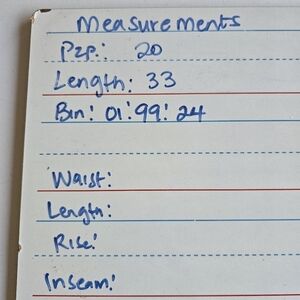 Measurements
P2P: 20
Length: 33
Bin: 01:99:24
Waist:
Length:
Rise:
Inseam: